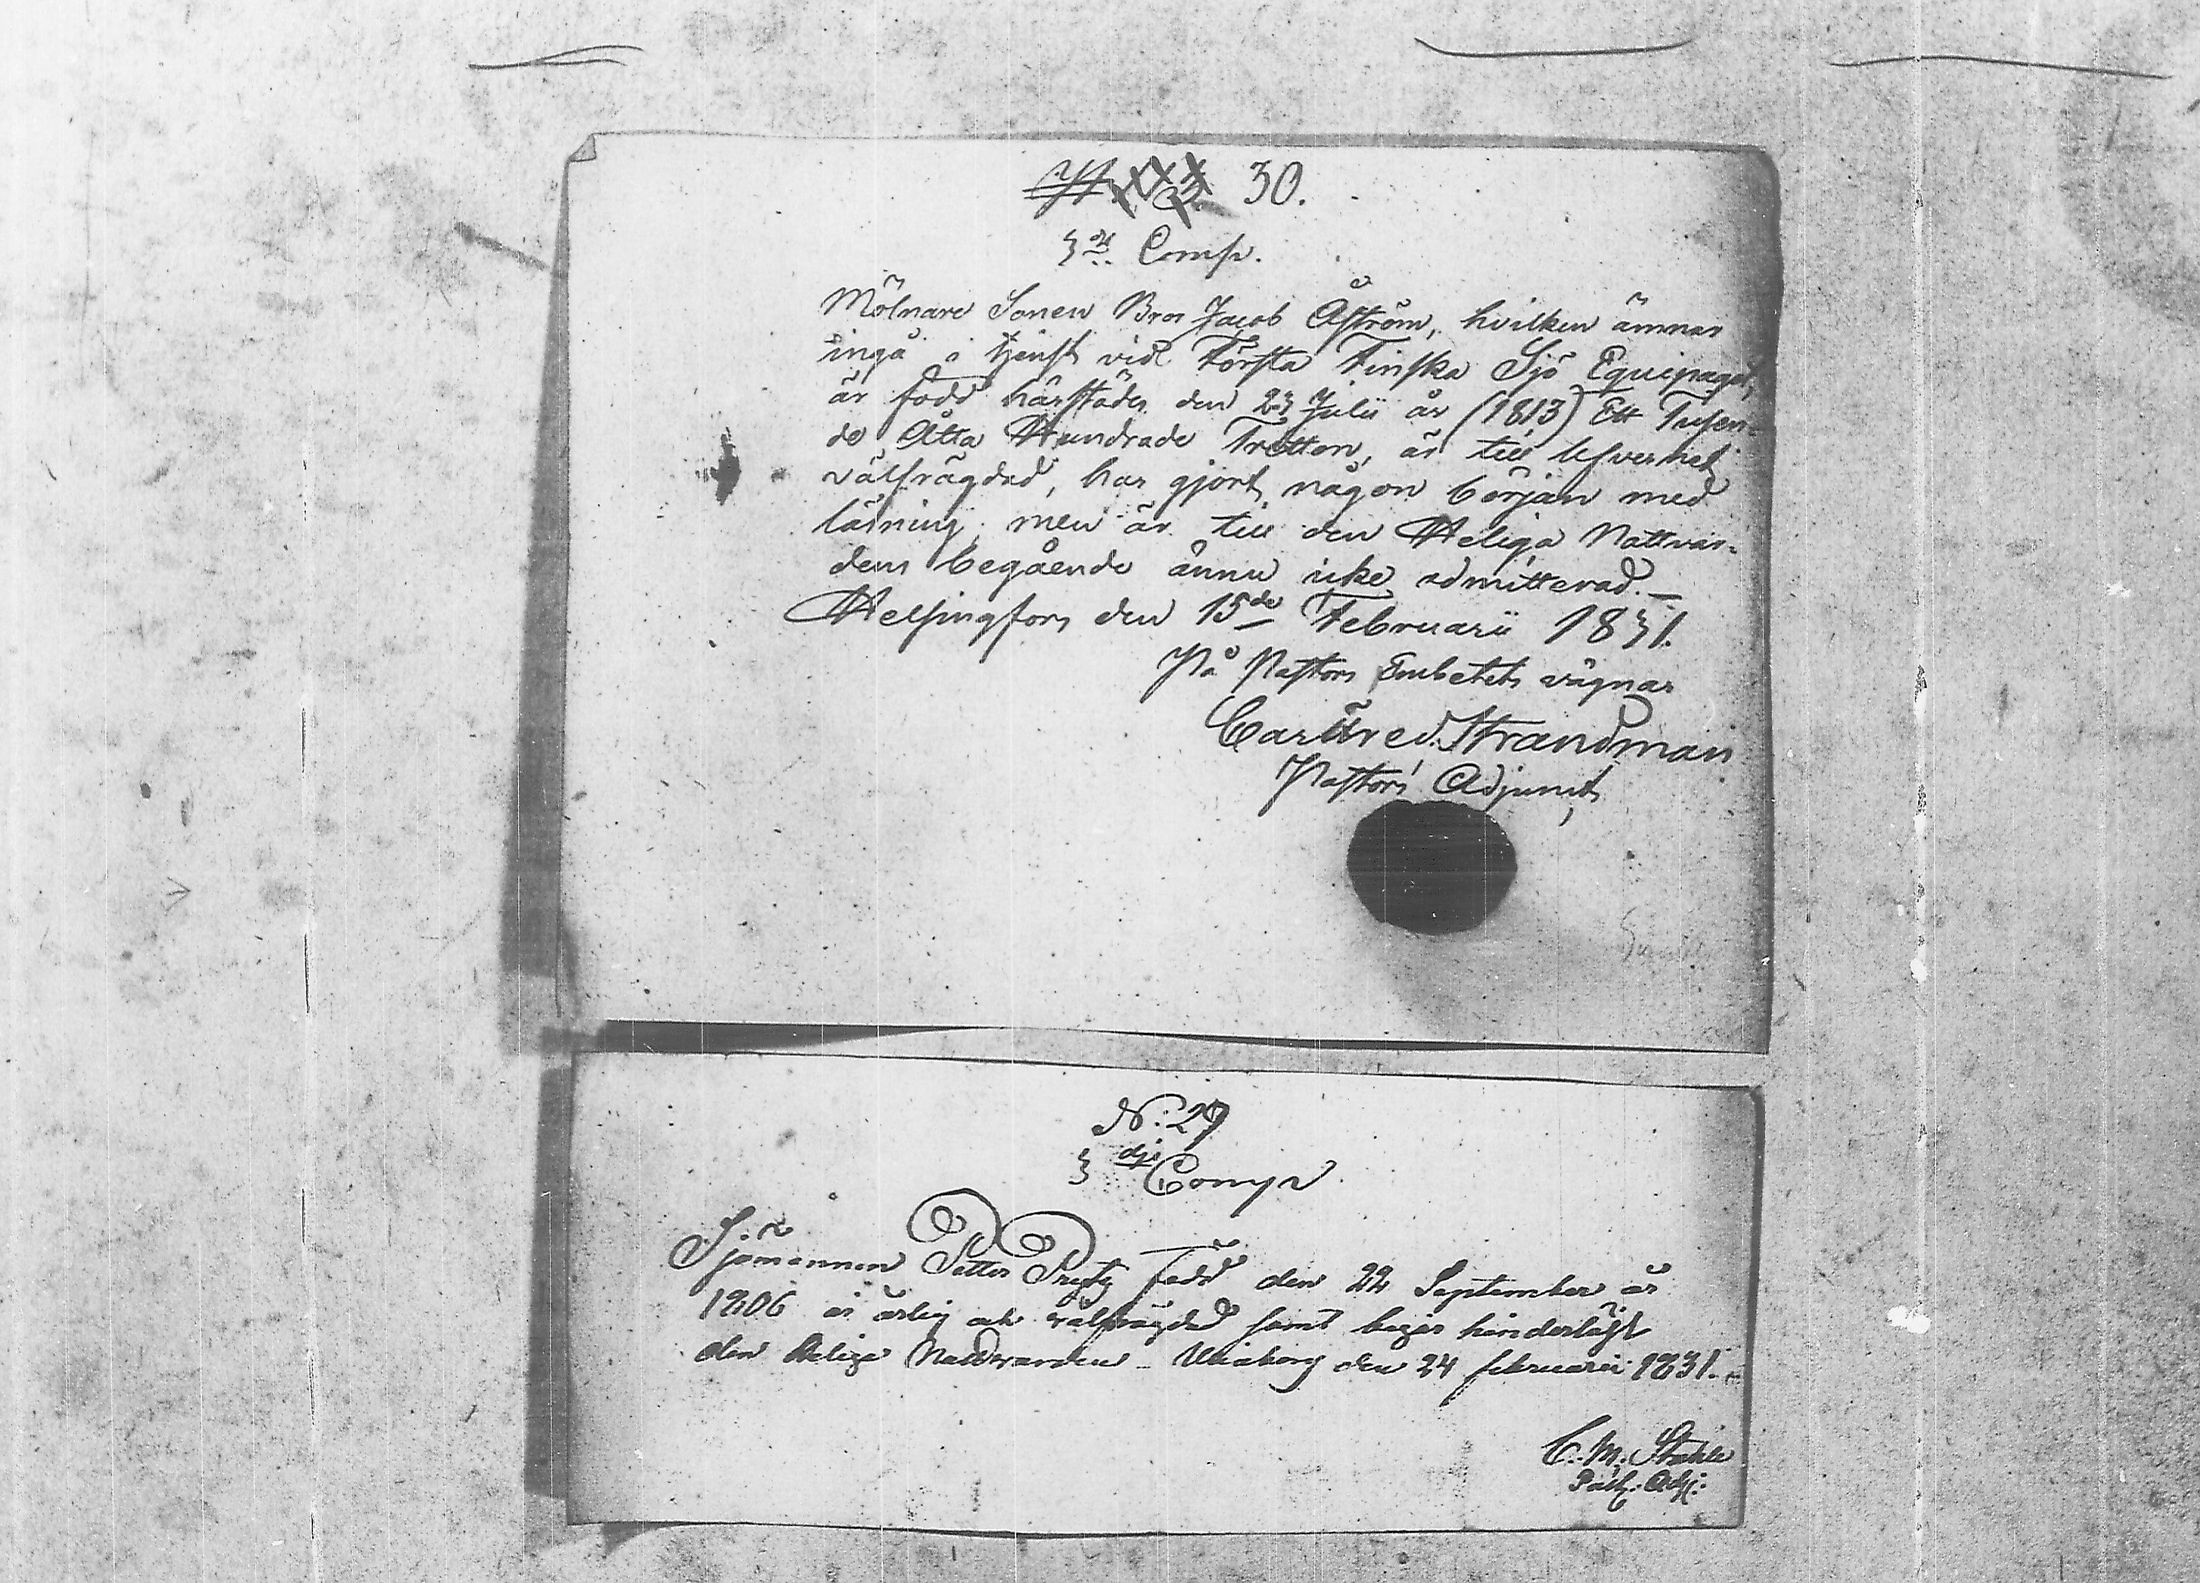 30.
3de Comp.
Mölnare Sonen Bror Jacob Åström, hvilken ämnar
ingå i tjenst vid Första Finska Sjö Equipaget,
är född härstädes den 23 Julii år (1813) Ett Tusen-
de Åtta Hundrade Tretton, är till lefvernet
välfrägdad, har gjort någon början med
läsning, men är till den Heliga Nattvar-
dens begående ännu icke admitterad.—
Helsingfors den 15de Februarii 1831.
På Pastors Embetets vägnar
Carl Fred. Strandman
Pastors Adjunct
N: 29
3dje Comp
Sjömannen Petter född den 22 September år
1806 är ärlig och välfrägdad samt begår hinderlöst
den Helige Nattwarden – Wiaborg den 24 februarii 1831.
C. M. Stahle
Past: Adj: